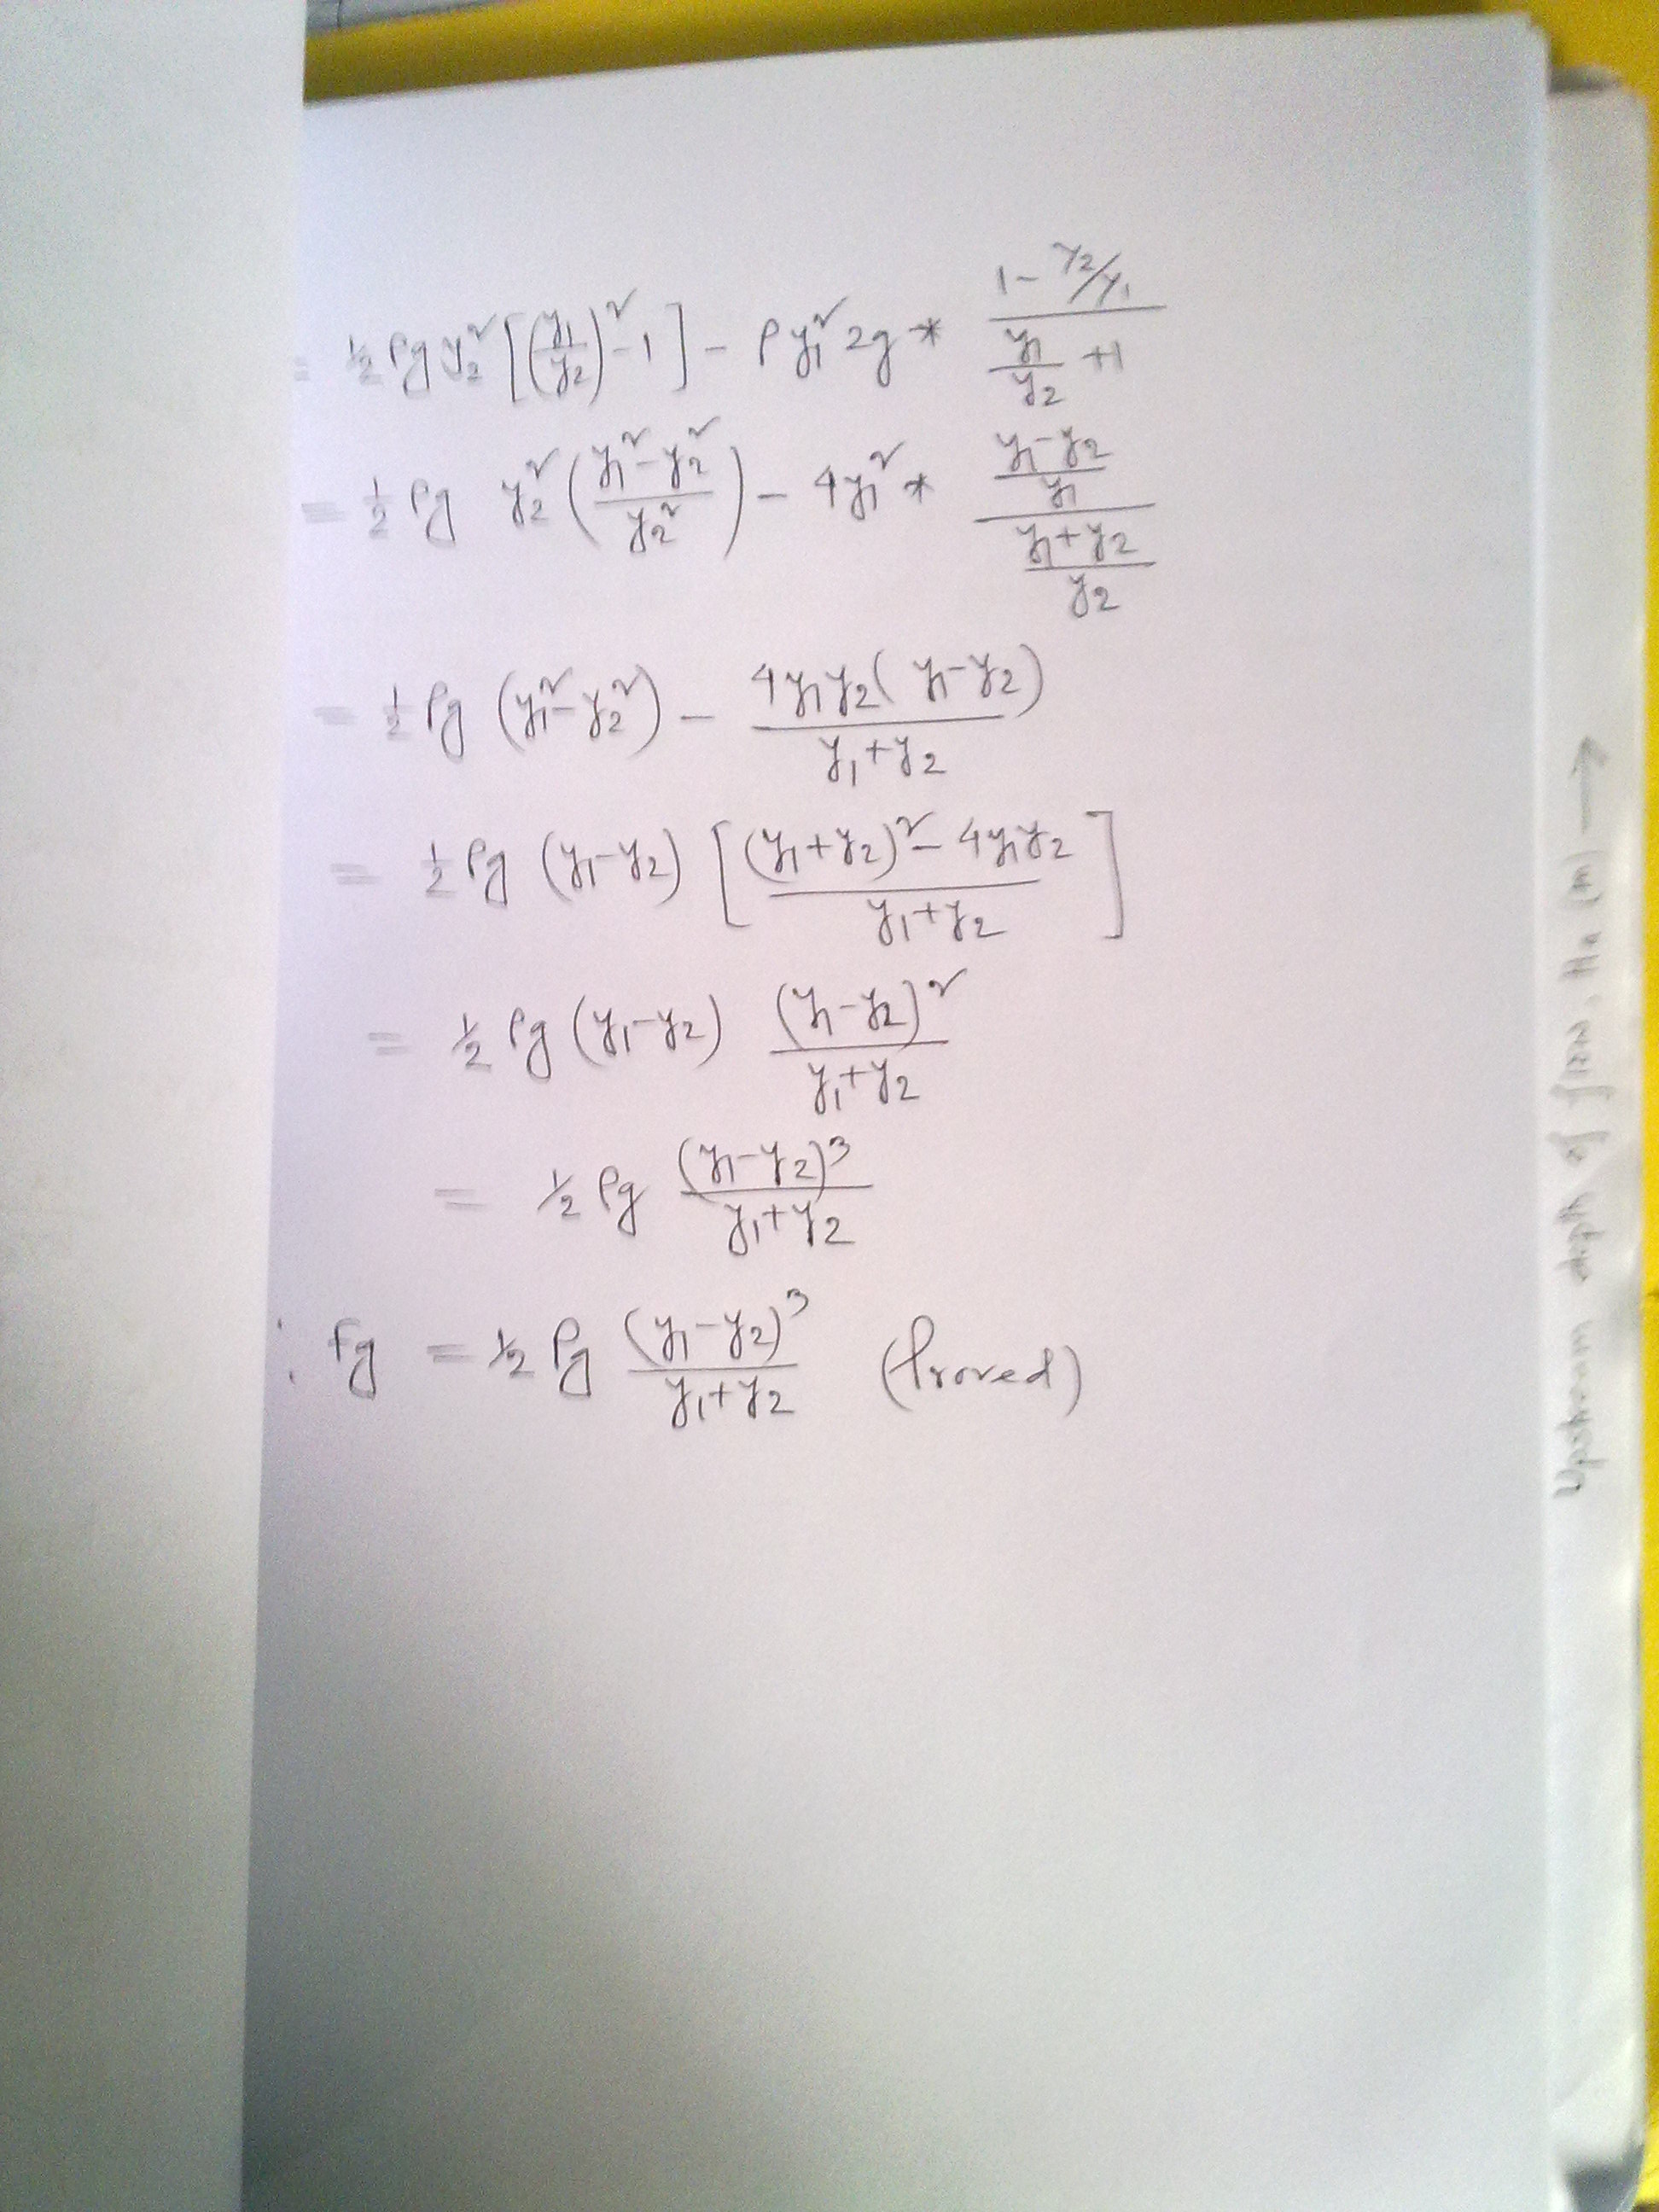 = ½ ρg y₂² [(y₁/y₂)² - 1] - ρ y₁² 2g * (1 - y₂/y₁)/(y₁/y₂ + 1)
= ½ ρg y₂² ((y₁² - y₂²)/y₂²) - 4y₁² * ((y₁ - y₂)/y₁)/((y₁ + y₂)/y₂)
= ½ ρg (y₁² - y₂²) - 4y₁y₂(y₁ - y₂)/(y₁ + y₂)
= ½ ρg (y₁ - y₂) [((y₁ + y₂)² - 4y₁y₂)/(y₁ + y₂)]
= ½ ρg (y₁ - y₂) (y₁ - y₂)²/(y₁ + y₂)
= ½ ρg (y₁ - y₂)³/(y₁ + y₂)
∴ Fg = ½ ρg (y₁ - y₂)³/(y₁ + y₂) (Proved)
Upstream depth of flow, Ha (m) →